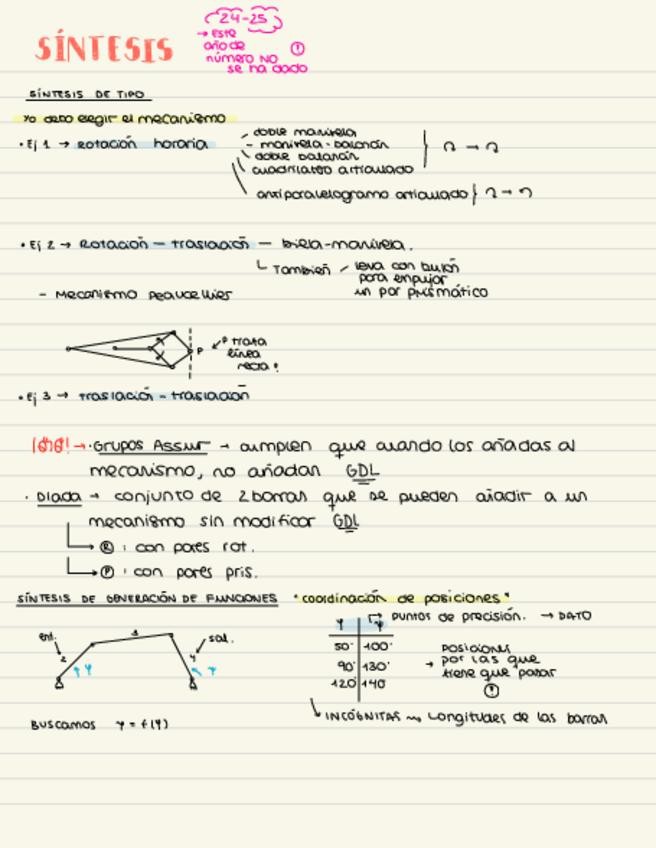 24-25
→ Este
año de
número NO
se ha dado
SÍNTESIS
SÍNTESIS DE TIPO
Yo debo elegir el mecanismo
• Ej 1 → Rotación horaria
doble manivela
- manivela - balancín
doble balancín
cuadrilátero articulado
antiparalelogramo articulado
• Ej 2 → Rotación – traslación – biela-manivela.
También
leva con bulón
para empujar
un par prismático
- Mecanismo Peaucellier
P
P traza
línea
recta!
• Ej 3 → traslación - traslación
→ • Grupos Assur → cumplen que cuando los añadas al
mecanismo, no añadan GDL
• Diada → conjunto de 2 barras que se pueden añadir a un
mecanismo sin modificar GDL
R : con pares rot.
P : con pares pris.
SÍNTESIS DE GENERACIÓN DE FUNCIONES "coordinación de posiciones"
ent.
2
3
4
sal.
φ
ψ
φ ψ
puntos de precisión. → DATO
50° 100°
90° 130°
120 140
→ posiciones
por las que
tiene que pasar
Buscamos ψ = f(φ)
INCÓGNITAS → Longitudes de las barras